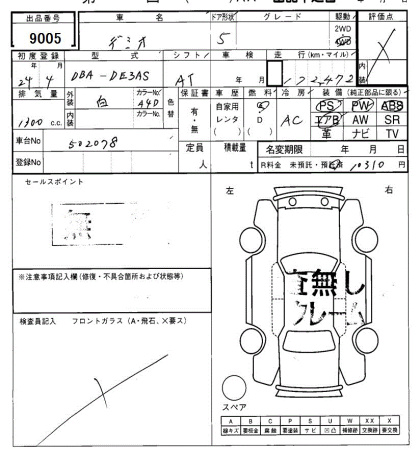 出品番号 車名 ドア形状 グレード 駆動 評価点
9005 デミオ 5 2WD 4WD
初度登録 型式 シフト 車検 走行(km・マイル) 内装
年 月 年 月
24 4 DBA-DE3AS AT 172,472
排気量 外装 カラーNo. 色替 保証書 車歴 燃料 冷房 装備(純正部品に限る)
1300 c.c. 白 A4D 有・無 自家用 レンタ ( ) G D ( ) AC PS PW ABS
内装 カラーNo. エアB AW SR
革 ナビ TV
車台No 502078
定員 積載量 名変期限 年 月 日
登録No 人 t R料金 未預託・預託済 10310 円
セールスポイント
無
左 右
※注意事項記入欄(修復・不具合箇所および状態等)
無し
フレーム
検査員記入 フロントガラス(A・飛石、×要ス)
スペア
A B C P S U W XX X
線キズ 要板金 腐蝕 要塗装 サビ 凹凸 補修跡 交換跡 要交換